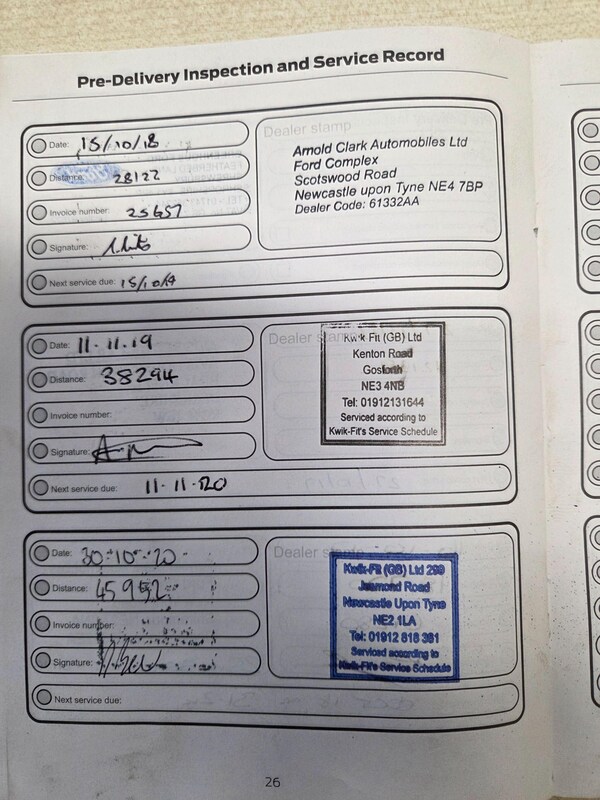 Pre-Delivery Inspection and Service Record
Date: 15/10/18
Distance: 28122
Invoice number: 25657
Signature:
Next service due: 15/10/19
Dealer stamp
Arnold Clark Automobiles Ltd
Ford Complex
Scotswood Road
Newcastle upon Tyne NE4 7BP
Dealer Code: 61332AA
Date: 11.11.19
Distance: 38294
Invoice number:
Signature:
Next service due: 11.11.20
Dealer stamp
Kwik Fit (GB) Ltd
Kenton Road
Gosforth
NE3 4NB
Tel: 01912131644
Serviced according to
Kwik-Fit's Service Schedule
Date: 30.10.20
Distance: 45952
Invoice number:
Signature:
Next service due:
Dealer stamp
Kwik-Fit (GB) Ltd 299
Jesmond Road
Newcastle Upon Tyne
NE2 1LA
Tel: 01912 818 381
Serviced according to
Kwik-Fit's Service Schedule
26